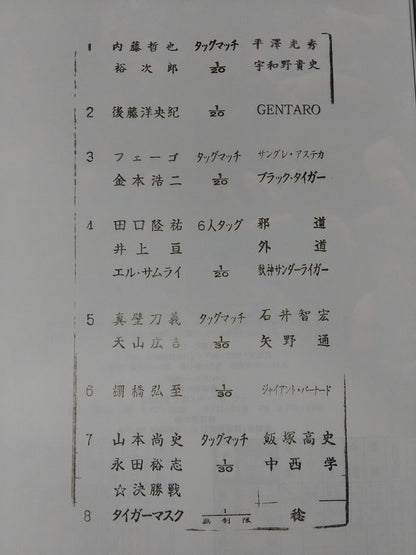 1 内藤哲也 タッグマッチ 平澤光秀
裕次郎 1/20 宇和野貴史
2 後藤洋央紀 1/20 GENTARO
3 フェーゴ タッグマッチ サングレ・アステカ
金本浩二 1/20 ブラック・タイガー
4 田口隆祐 6人タッグ 邪道
井上亘 外道
エル・サムライ 1/20 獣神サンダーライガー
5 真壁刀義 タッグマッチ 石井智宏
天山広吉 1/30 矢野通
6 棚橋弘至 1/30 ジャイアント・バーナード
7 山本尚史 タッグマッチ 飯塚高史
永田裕志 1/30 中西学
☆決勝戦
8 タイガーマスク 1/無制限 稔